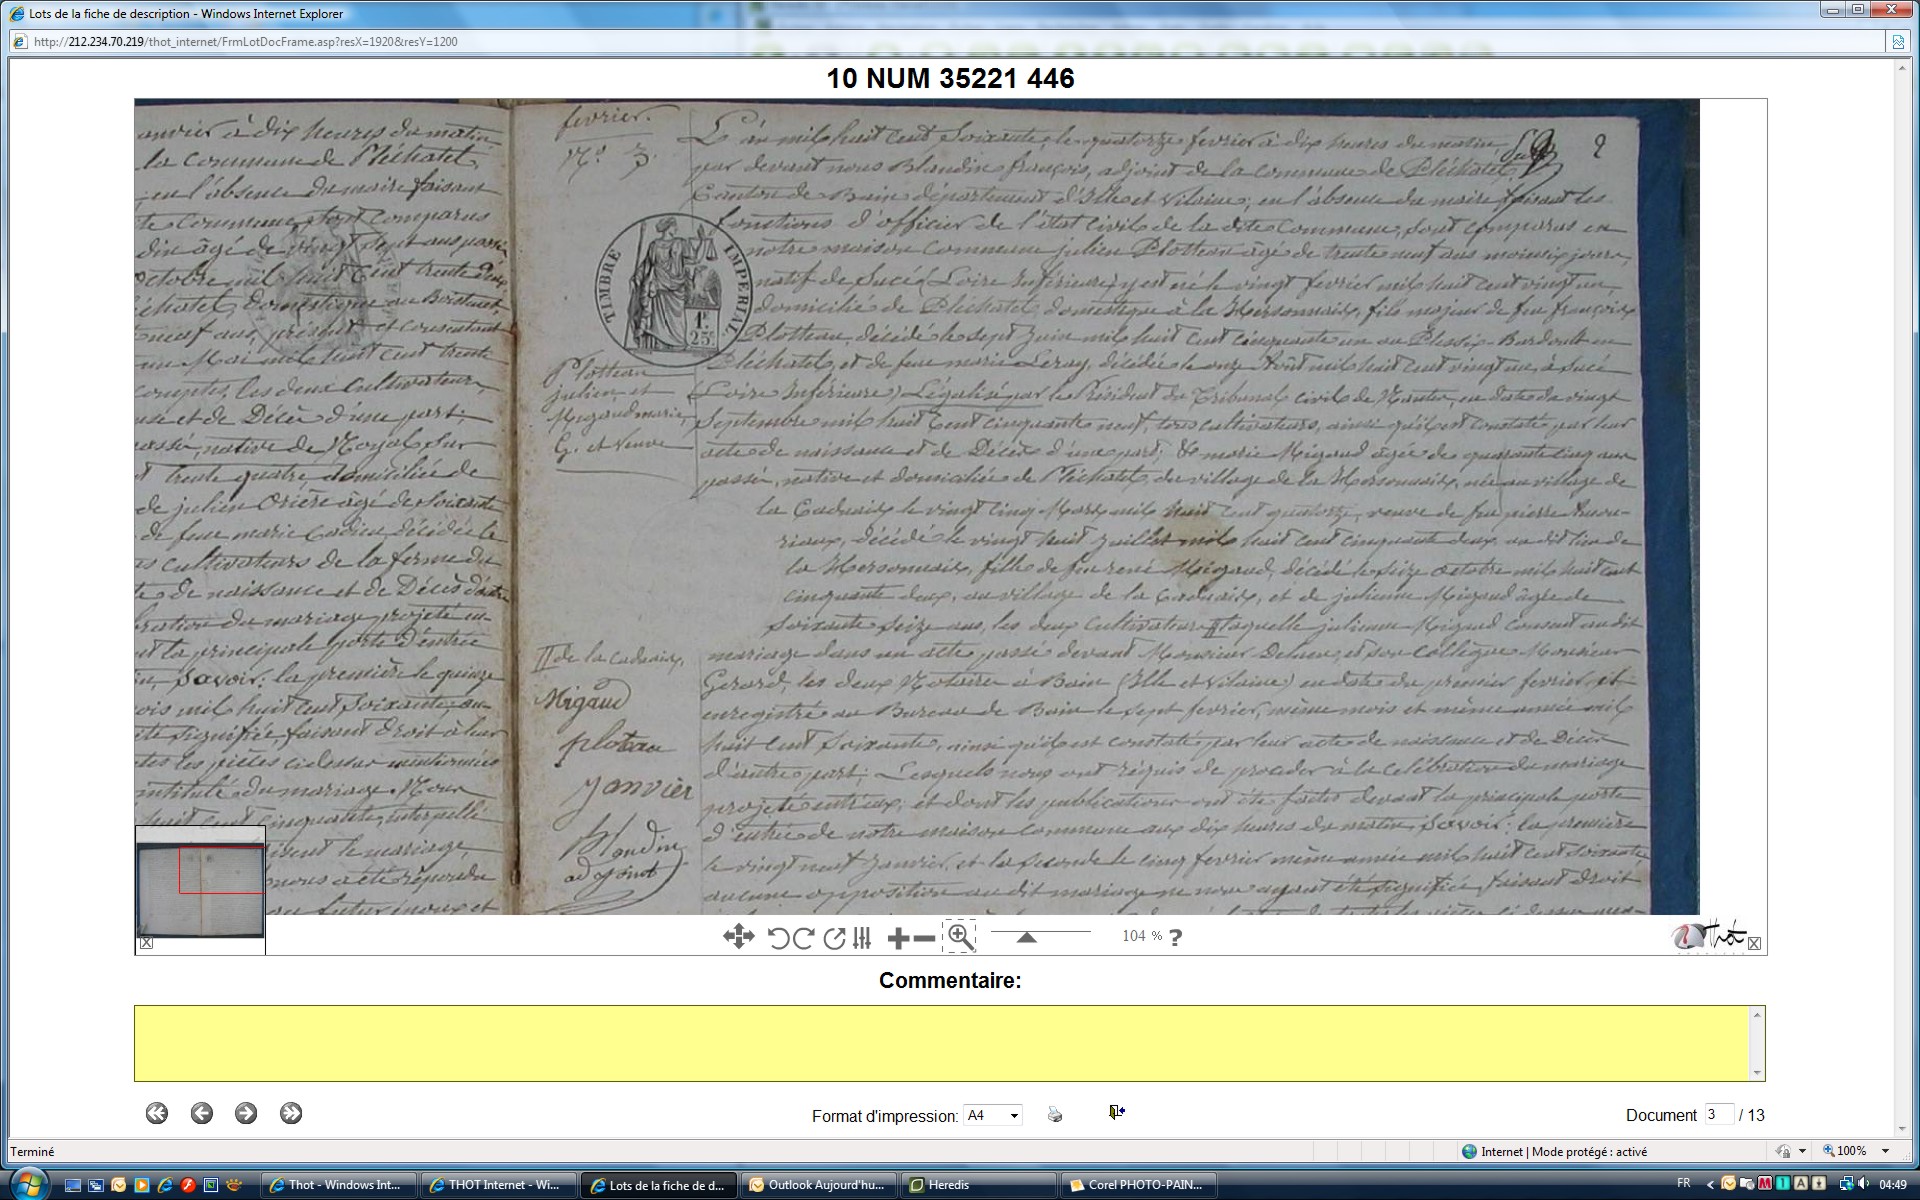 Lots de la fiche de description - Windows Internet Explorer
http://212.234.70.219/thot_internet/FrmLotDocFrame.asp?resX=1920&resY=1200
10 NUM 35221 446
anvier à dix heures du matin
la Commune de Pléchatel
en l'absence du maire faisant
te Commune, sont comparus
din âgé de vingt sept ans passé
octobre mil huit cent trente deux
échatel, domestique au Boistuart
neuf ans, présent et consentant
Mai mil huit cent trente
comptes, les deux Cultivateurs,
et de Décès d'une part;
passé, native de Noyal sur
t trente quatre, domiciliée de
de julien Orière âgé de soixante
de feue marie Cadieu décédée le
cultivateurs de la ferme du
te de naissance et de Décès d'autre
bration du mariage projeté en-
la principale porte d'entrée
Savoir: la première le quinze
ois mil huit cent soixante, au-
été signifiée, faisant droit à leur
tes les pièces ci dessus mentionnées
intitulé du mariage. Nous
huit cent cinquante, interpellé
le mariage,
nous a été répondu
au futur époux et
fevrier.
N.º 3.
TIMBRE IMPERIAL
1F.
25c
Plotteau
julien et
Migaud marie,
G. et Veuve
L'an mil huit cent Soixante, le quatorze fevrier à dix heures du matin 2
par devant nous Blandin françois, adjoint de la commune de Pléchatel,
Canton de Bain département d'Ille et Vilaine; en l'absence du maire faisant les
fonctions d'officier de l'état civil de la dite Commune, sont comparus en
notre maison commune julien Plotteau âgé de trente neuf ans moins six jours,
natif de Sucé (Loire Inférieure) y est né le vingt fevrier mil huit cent vingt un,
domicilié de Pléchatel domestique à la Mersonnais, fils majeur de feu françois
Plotteau, décédé le sept Juin mil huit cent cinquante un au Plessix-Bardoult en
Pléchatel, et de feue marie Leray, décédée le onze Août mil huit cent vingt un, à Sucé
(Loire Inférieure) Légalisé par le Président du Tribunal civil de Nantes, en date du vingt
Septembre mil huit Cent cinquante neuf, tous cultivateurs, ainsi qu'il est constaté par leur
acte de naissance et de Décès d'une part; & marie Migaud âgée de quarante cinq ans
passés, native et domiciliée de Pléchatel, du village de la Mersonnais, née au village de
la Caduais le vingt cinq Mars mil huit cent quatorze, veuve de feu pierre
décédé le vingt huit Juillet mil huit cent cinquante deux, au dit lieu de
la Mersonnais, fille de feu rené Migaud, décédé le Seize Octobre mil huit cent
cinquante deux, au village de la Caduais, et de julienne Migaud âgée de
Soixante Seize ans, les deux Cultivateurs laquelle julienne Migaud consent au dit
mariage dans un acte passé devant Monsieur et son Collègue Monsieur
Gerard, les deux Notaires à Bain (Ille et Vilaine) en date du premier fevrier, et
enregistré au Bureau de Bain le sept fevrier, même mois et même année mil
huit cent Soixante, ainsi qu'il est constaté par leur acte de naissance et de Décès
d'autre part; Lesquels nous ont réquis de procéder à la célébration du mariage
projeté entr'eux, et dont les publications ont été faites devant la principale porte
d'entrée de notre maison commune aux dix heures du matin, Savoir: la première
le vingt neuf Janvier, et la seconde le cinq fevrier même année mil huit cent soixante
aucune opposition au dit mariage ne nous ayant été signifiée, faisant droit
de la Caduais,
Migaud
plotau
janvier
Blandin
adjoint
104 % ?
Thot
Commentaire:
Format d'impression: A4
Document 3 / 13
Terminé
Internet | Mode protégé : activé
100%
Thot - Windows Int...
THOT Internet - Wi...
Lots de la fiche de d...
Outlook Aujourd'hu...
Heredis
Corel PHOTO-PAIN...
FR
04:49